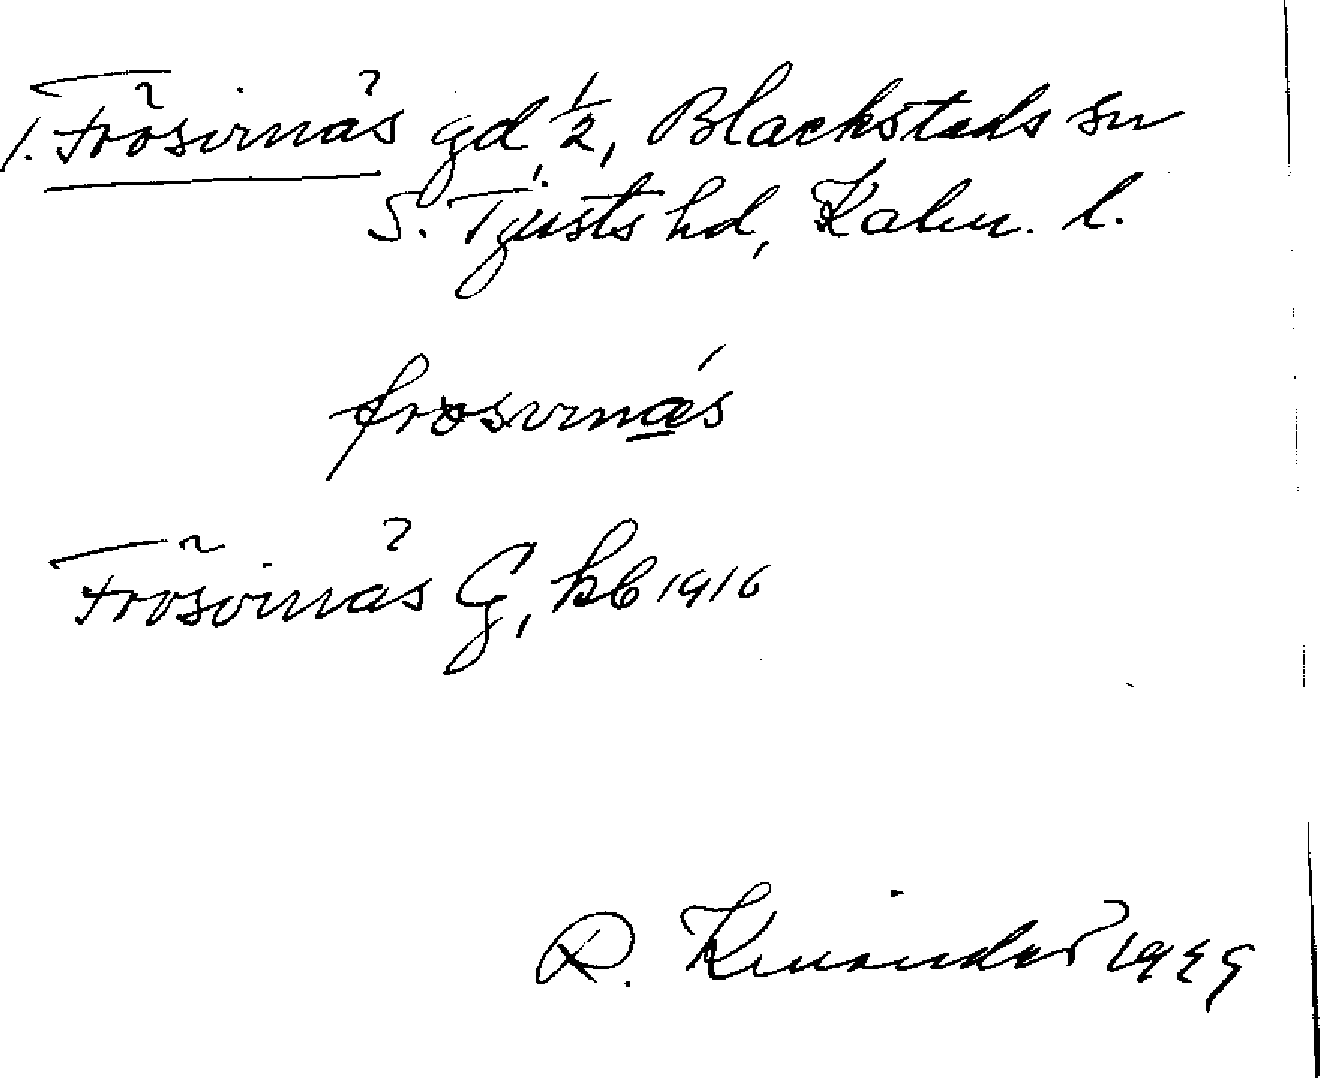 1. Frösvinäs gd ½, Blackstads sn
S. Tjusts hd, Kalm. l.
frøsvinǽs
Frösvinäs G, kb 1916
R. Kinander 1929